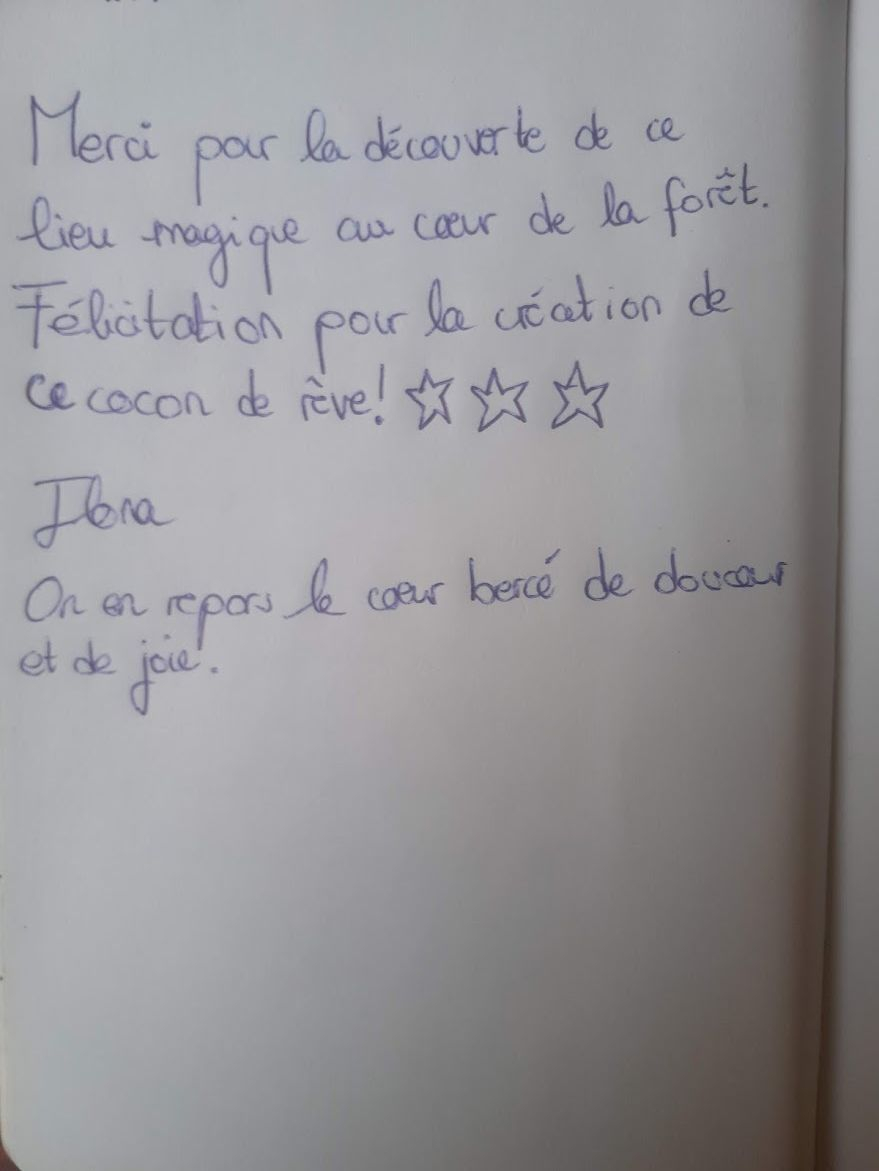 Merci pour la découverte de ce
lieu magique au cœur de la forêt.
Félicitation pour la création de
ce cocon de rêve! ☆☆☆
On en repars le cœur bercé de douceur
et de joie!.